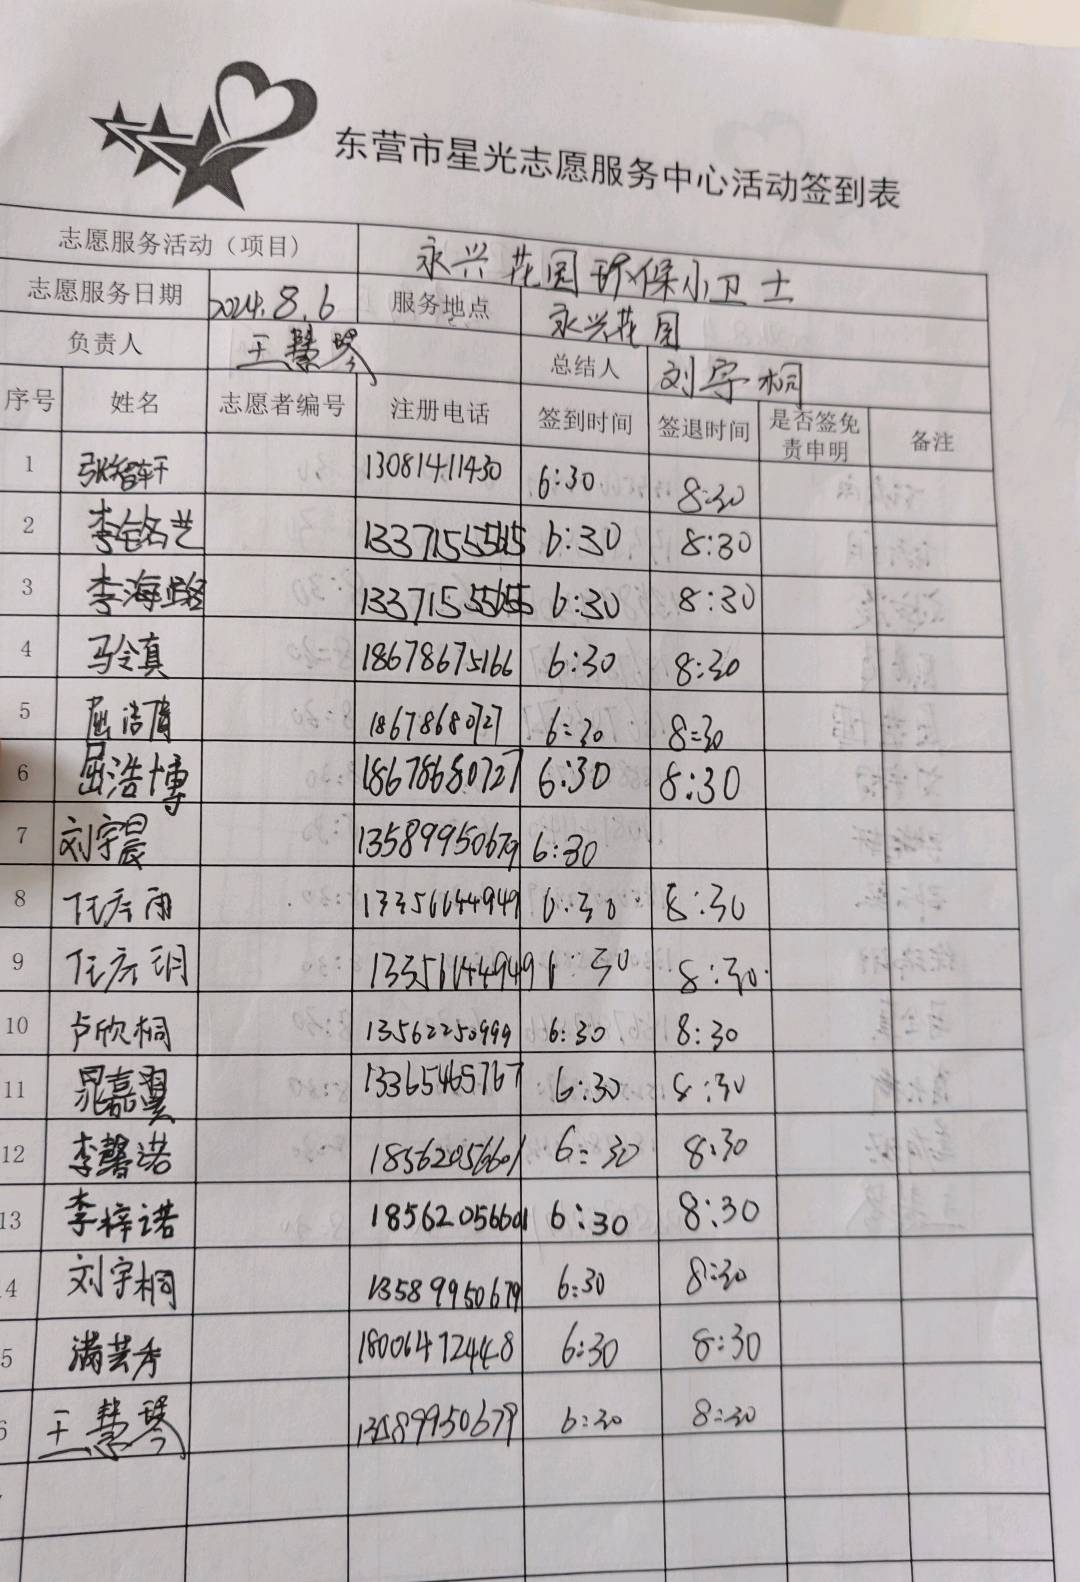 东营市星光志愿服务中心活动签到表
志愿服务活动（项目） 永兴花园环保小卫士
志愿服务日期 2024.8.6 服务地点 永兴花园
负责人 王慧琴 总结人 刘宇桐
序号 姓名 志愿者编号 注册电话 签到时间 签退时间 是否签免责申明 备注
1 张智轩 13081411430 6:30 8:30
2 李铭艺 6:30 8:30
3 李海路 6:30 8:30
4 马令真 18678675166 6:30 8:30
5 屈浩 18678680727 6:30 8:30
6 屈浩博 18678680727 6:30 8:30
7 刘宇晨 13589950679 6:30
8 任彦雨 13356144949 6:30 8:30
9 任彦玥 13356144949 6:30 8:30
10 卢欣桐 13562250999 6:30 8:30
11 晁嘉翼 13365465767 6:30 8:30
12 李馨诺 18562056601 6:30 8:30
13 李梓诺 18562056601 6:30 8:30
4 刘宇桐 13589950679 6:30 8:30
5 满芸秀 18006472448 6:30 8:30
6 王慧琴 13589950679 6:30 8:30